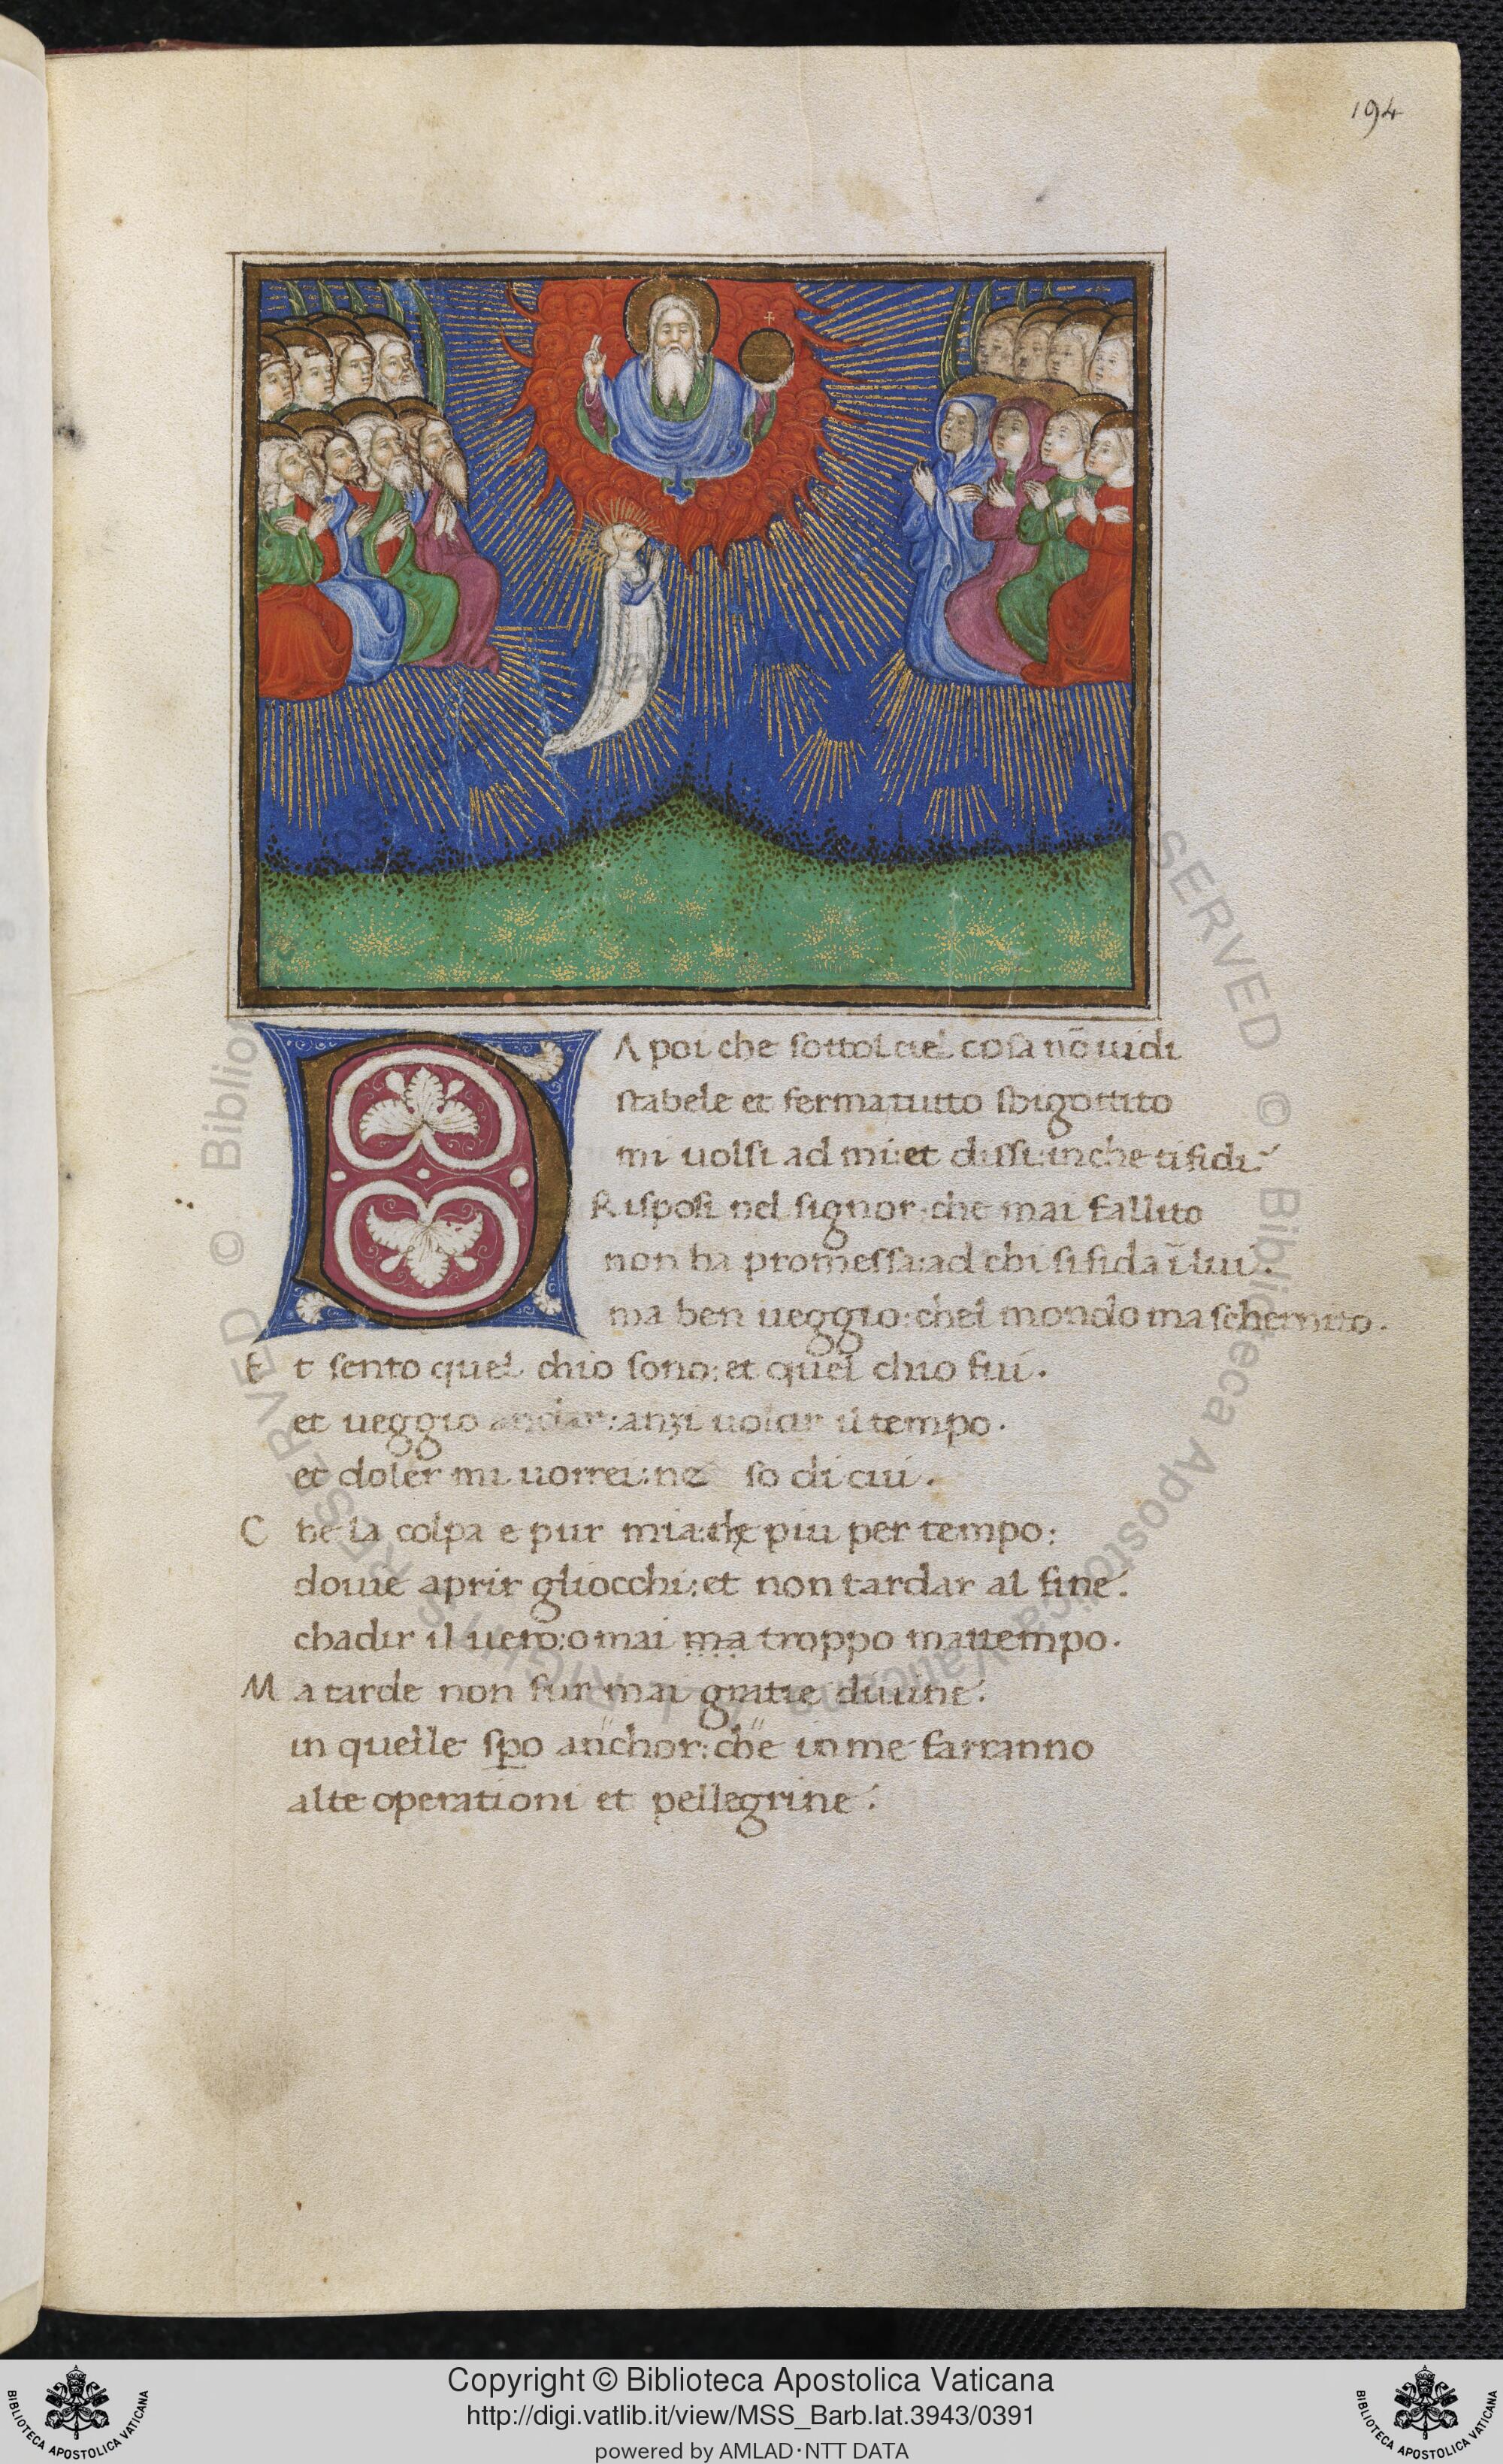 194
DA poi che sottol ciel cosa nō uidi
stabele et ferma tutto sbigottito
mi uolsi ad mi: et dissi: in che ti fidi.
Risposi nel signor: che mai fallito
non ha promessa: ad chi si fida ī lui.
ma ben ueggio: chel mondo ma schernito.
Et sento quel chio sono: et quel chio fui.
et ueggio andar: anzi uolar il tempo.
et doler mi uorrei: ne so di cui.
Che la colpa e pur mia: che piu per tempo:
doue aprir gliocchi: et non tardar al fine.
chadir il uero: omai ma troppo mattempo.
Ma tarde non fur mai gratie diuine.
in quelle spo anchor: che in me farranno
alte operationi et pellegrine.
Copyright © Biblioteca Apostolica Vaticana
http://digi.vatlib.it/view/MSS_Barb.lat.3943/0391
powered by AMLAD·NTT DATA
BIBLIOTECA APOSTOLICA VATICANA
BIBLIOTECA APOSTOLICA VATICANA